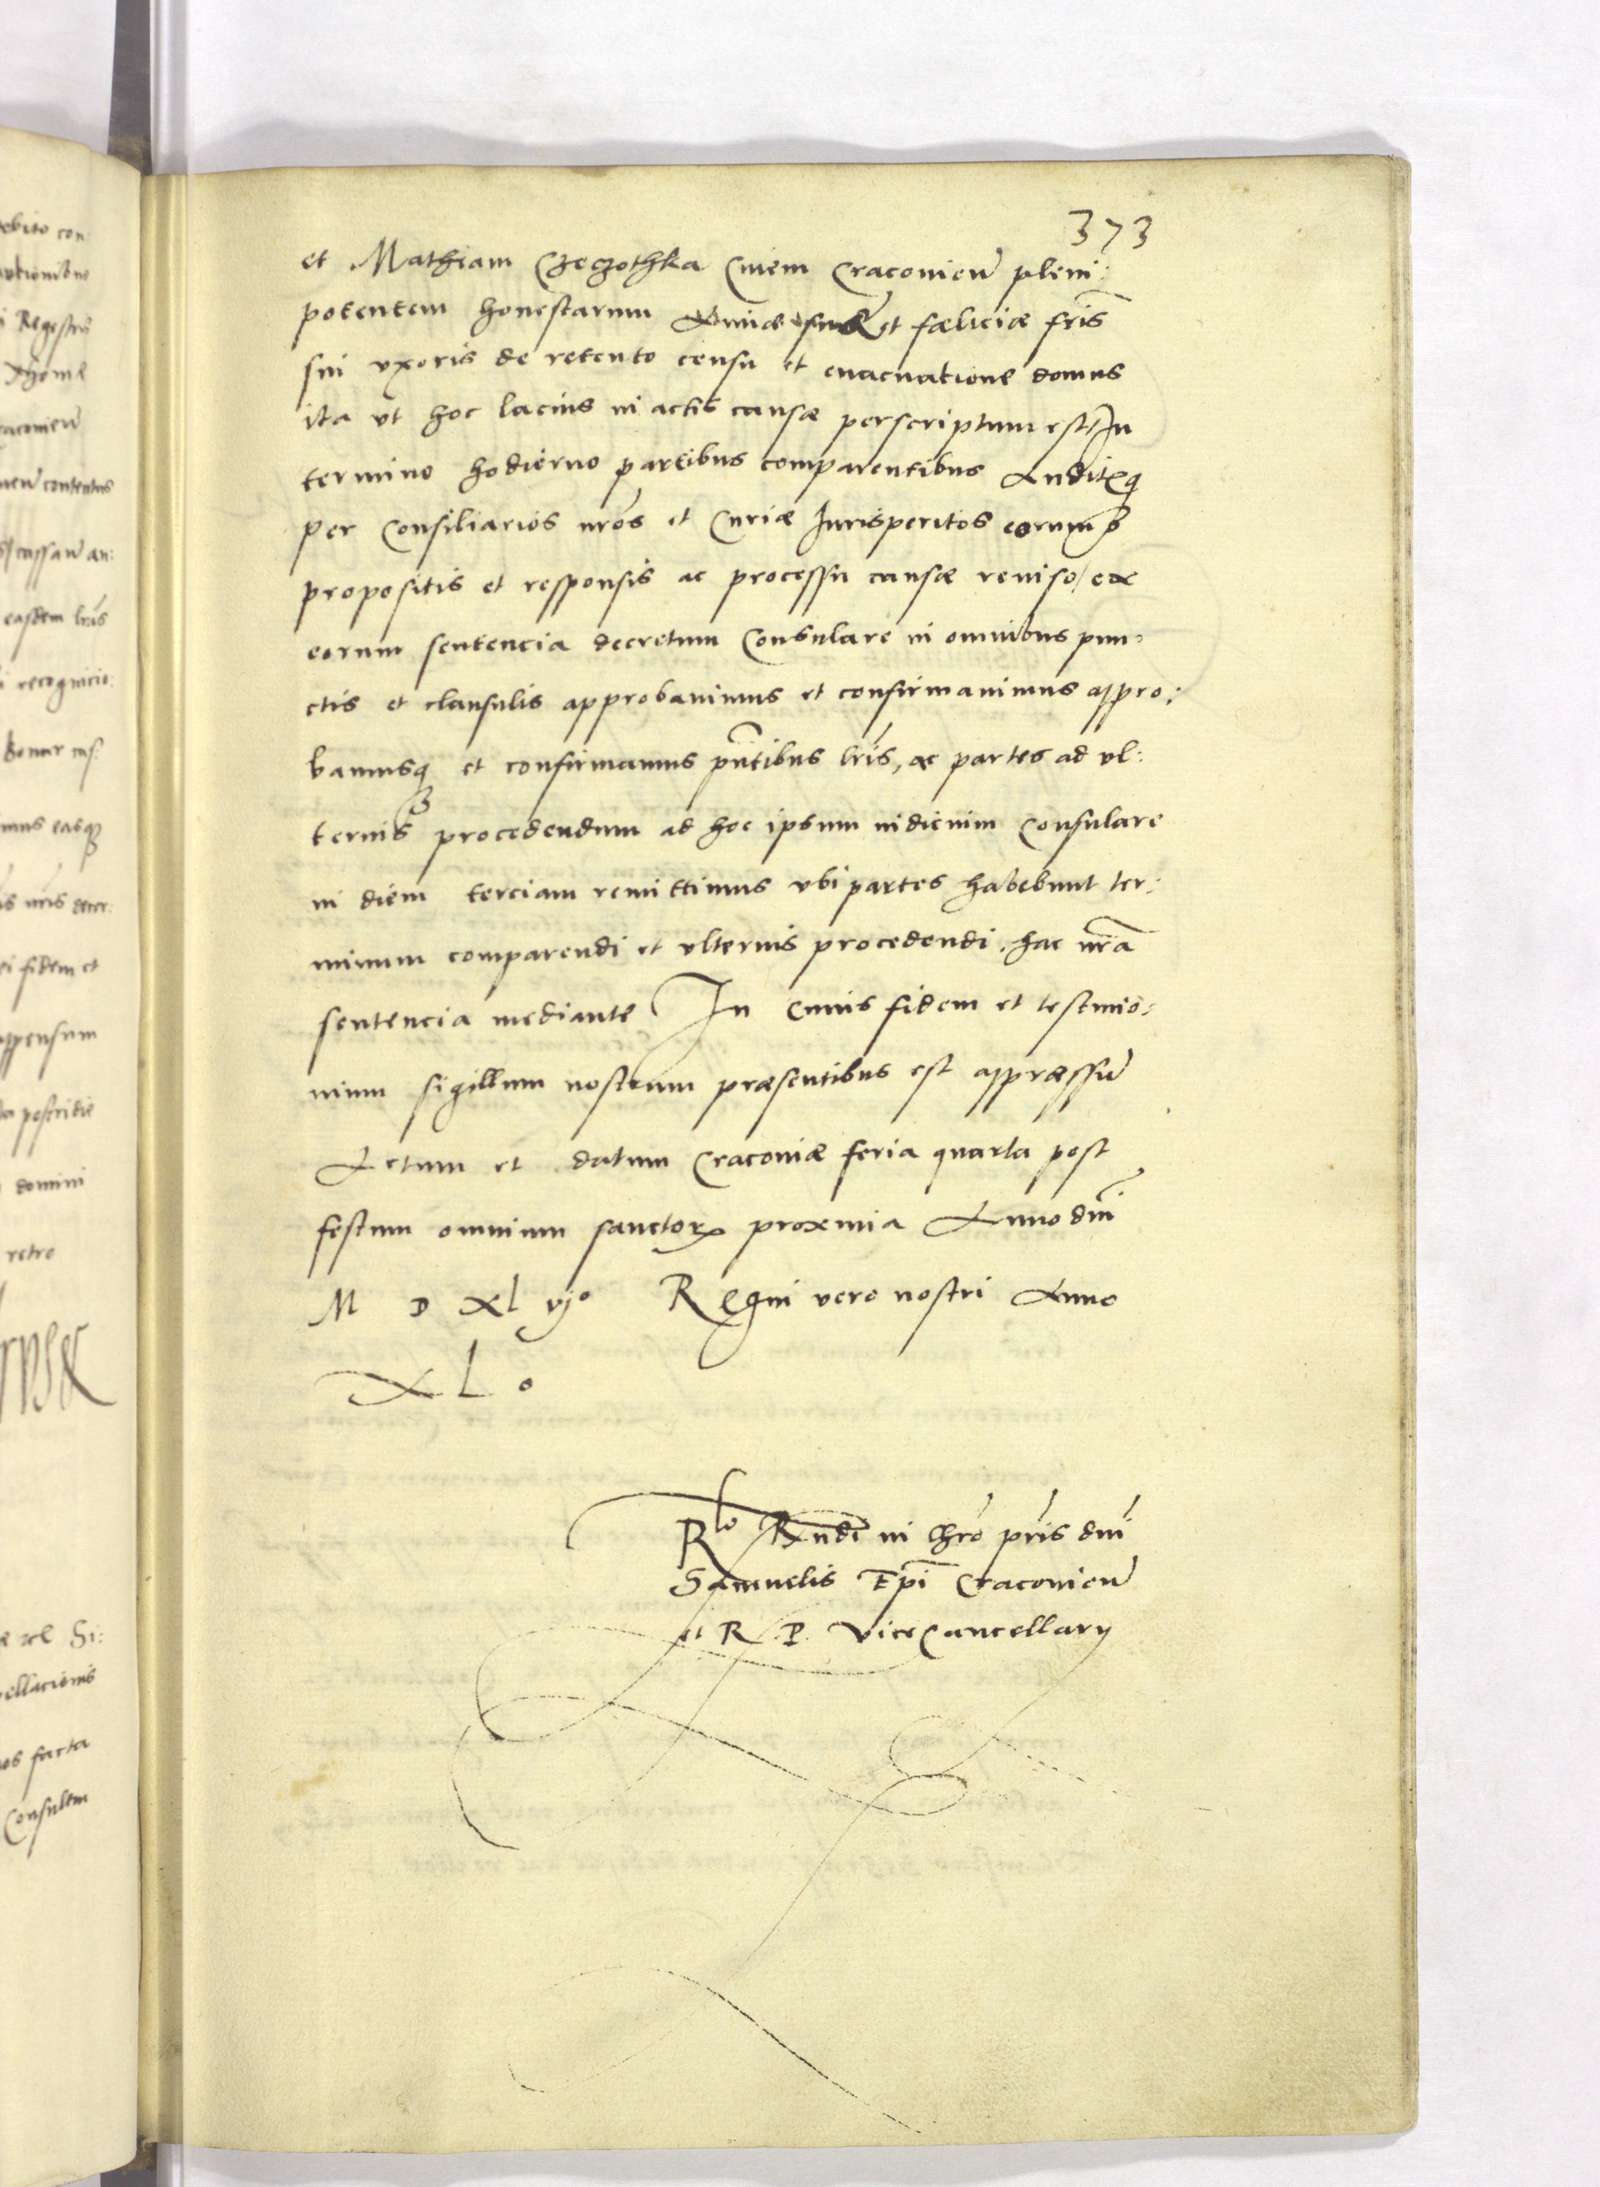 373
et Mathiam Czeczothka Civem Craconien̄ pleni:
potentem honestarum Annæ suæ et fæliciæ fris̄
sui uxoris de retento censu et evacuatione domus
ita ut hoc lacius in actis causæ perscriptum est, In
termino hodierno partibus comparentibus Auditisq
per Consiliarios nros̄ et Curiæ Jurisperitos eorum
propositis et responsis ac processu causæ reviso, ex
eorum sentencia decretum Consulare in omnibus pun:
ctis et clausulis approbavimus et confirmavimus appro:
bamusq et confirmamus pn̄tibus lris̄, ac partes ad ul:
terius procedendum ad hoc ipsum iudicium Consulare
in diem terciam remittimus ubi partes habebunt ter:
minum comparendi et ulterius procedendi, hac nrā
sentencia mediante In Cuius fidem et testimo:
nium sigillum nostrum præsentibus est appræssum̄
Actum et datum Craconiæ feria quarta post
festum omnium sanctorꝝ proxima Anno dnī
M D xl vjº Regni vero nostri Anno
XL º
Rlo Rndi in Chrō pris̄ dnī
Samuelis Epī Craconien̄
et R P Vice Cancellarij
ebito con:
Regestris
contentus
easdem lris̄
recognicio:
fidem et
ppensum
postridie
domini
retro
Si:
ellacionis
os facta
Consulem